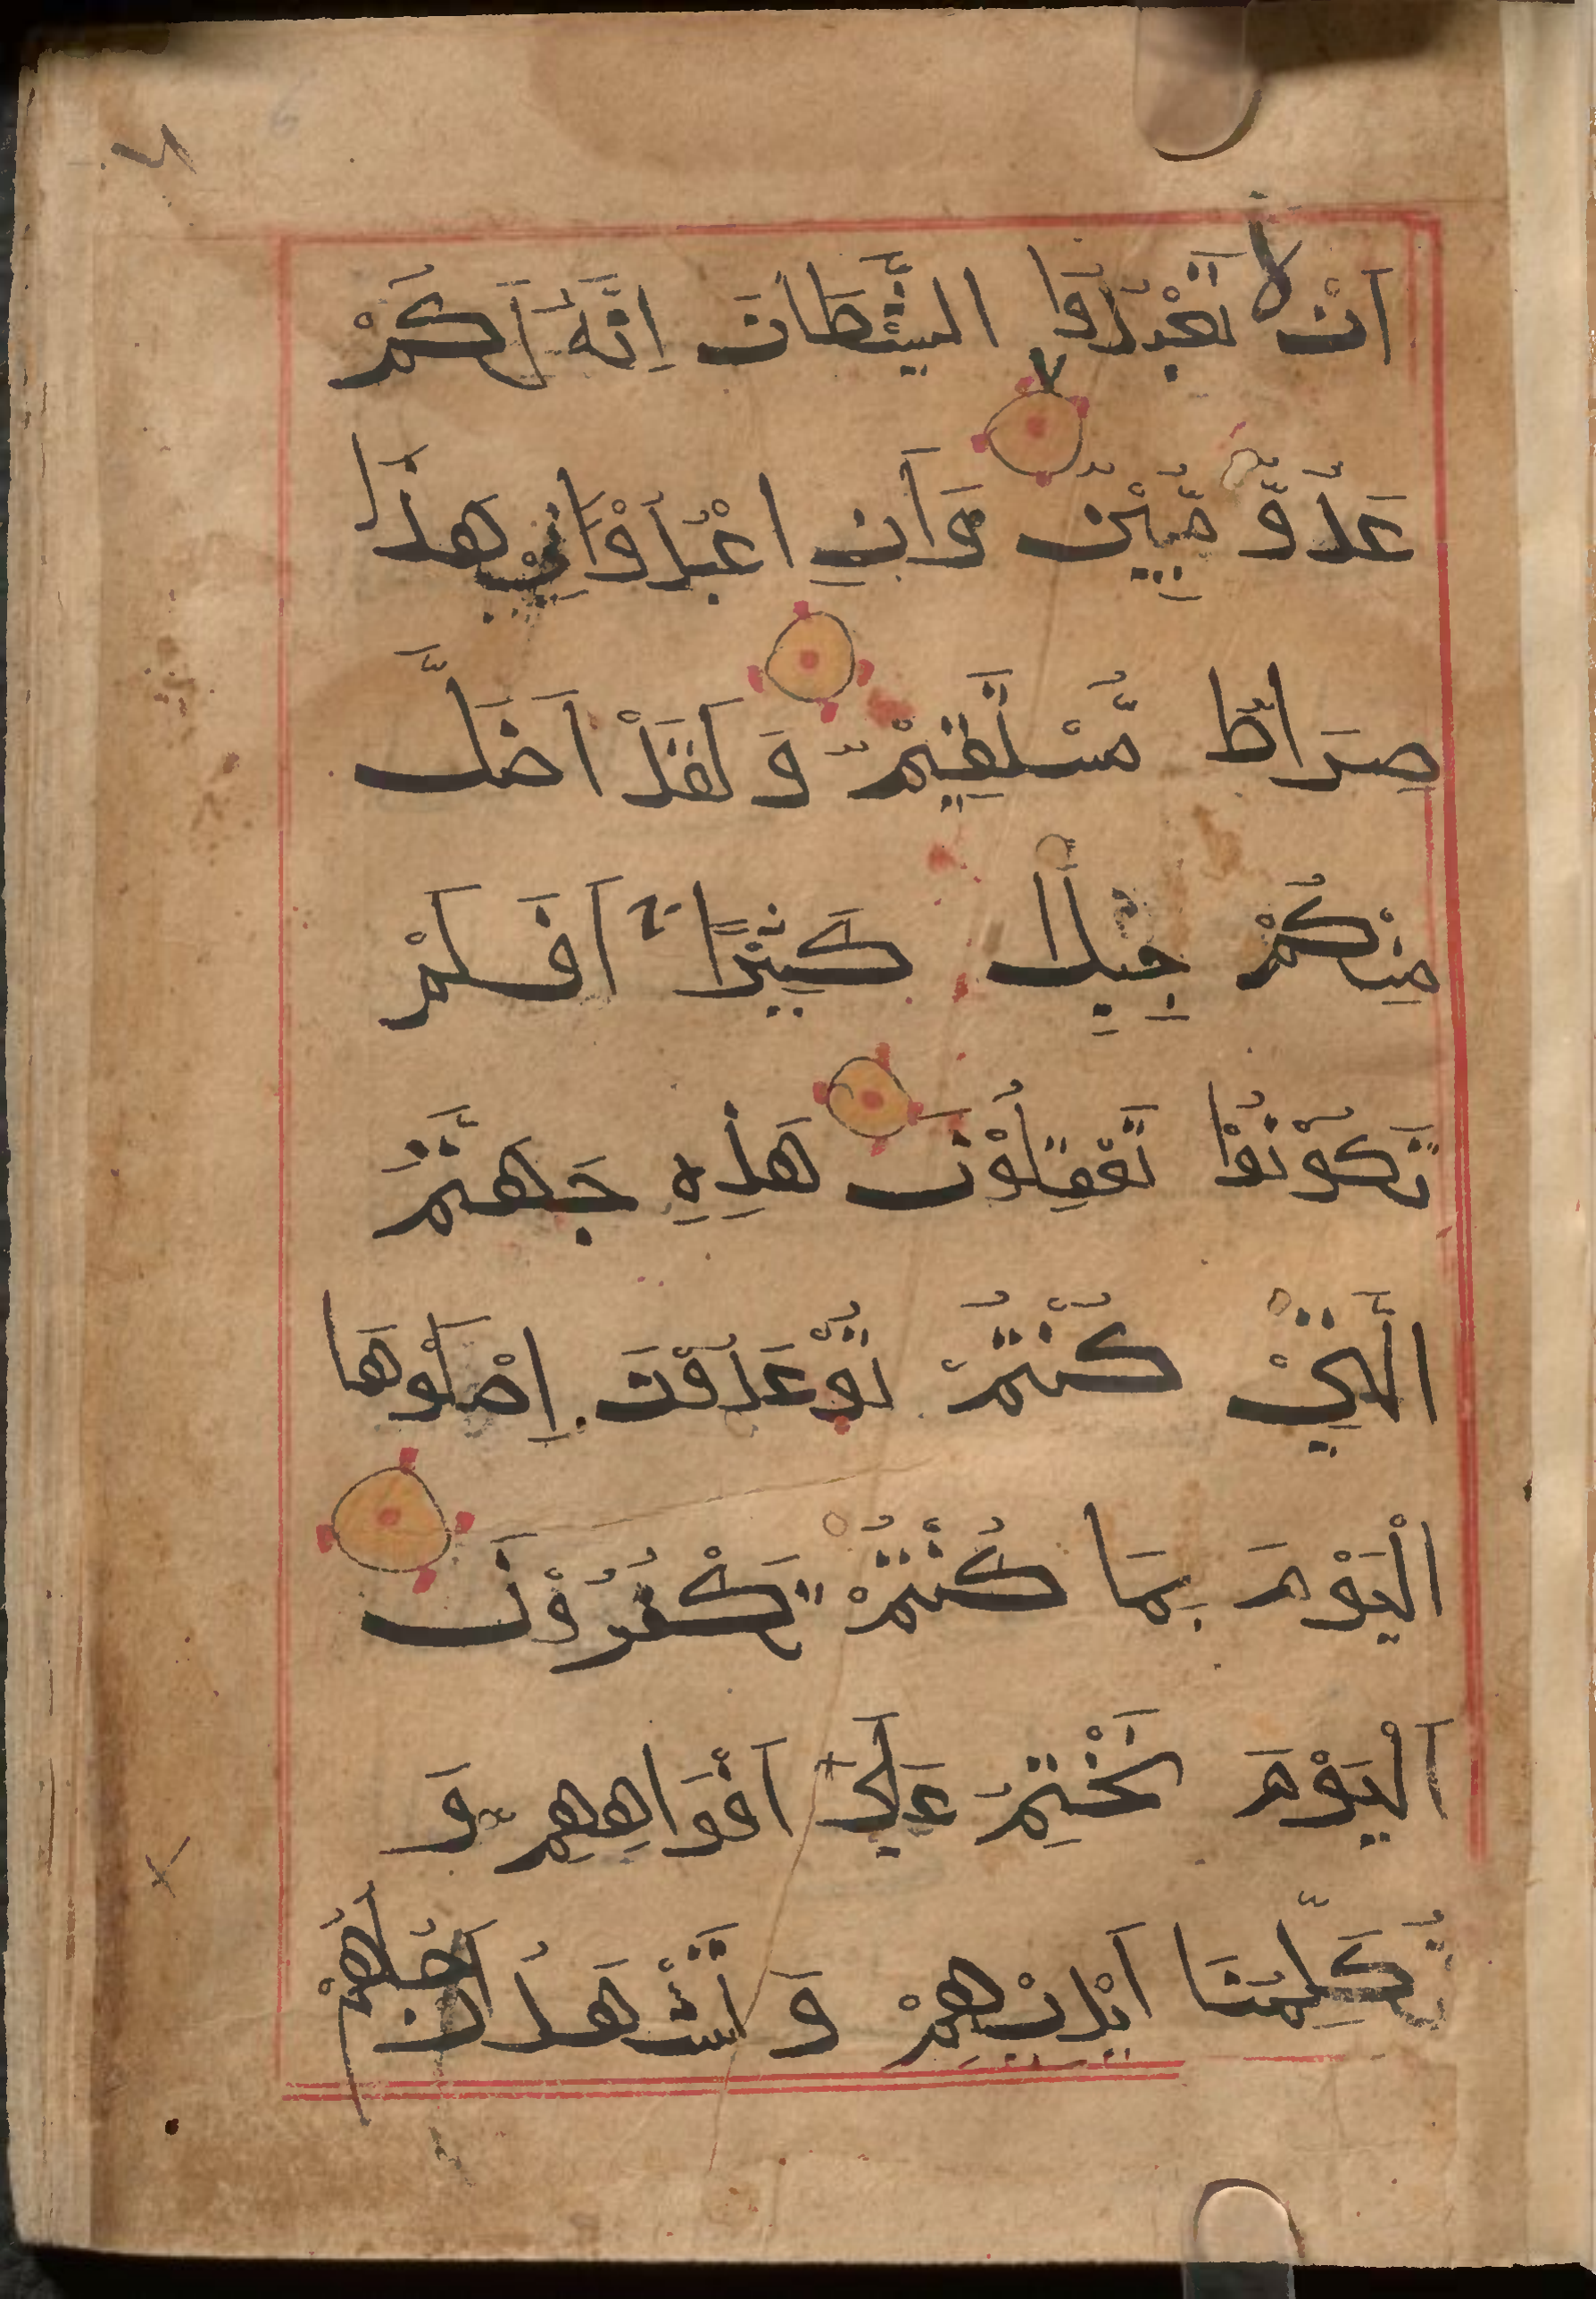 اَنْ لَّا تَعْبُدُوا الشَّيْطَانَ اِنَّهُ لَكُمْ
عَدُوٌّ مُّبِيْنٌ وَاَنِ اعْبُدُوْانِيْ هٰذَا
صِرَاطٌ مُّسْتَقِيْمٌ وَلَقَدْ اَضَلَّ
مِنْكُمْ جِبِلًّا كَثِيْرًا اَفَلَمْ
تَكُوْنُوْا تَعْقِلُوْنَ هٰذِهِ جَهَنَّمُ
الَّتِيْ كُنْتُمْ تُوْعَدُوْنَ اِصْلَوْهَا
الْيَوْمَ بِمَا كُنْتُمْ تَكْفُرُوْنَ
اَلْيَوْمَ نَخْتِمُ عَلٰى اَفْوَاهِهِمْ وَ
تُكَلِّمُنَا اَيْدِيْهِمْ وَتَشْهَدُ اَرْجُلُهُمْ